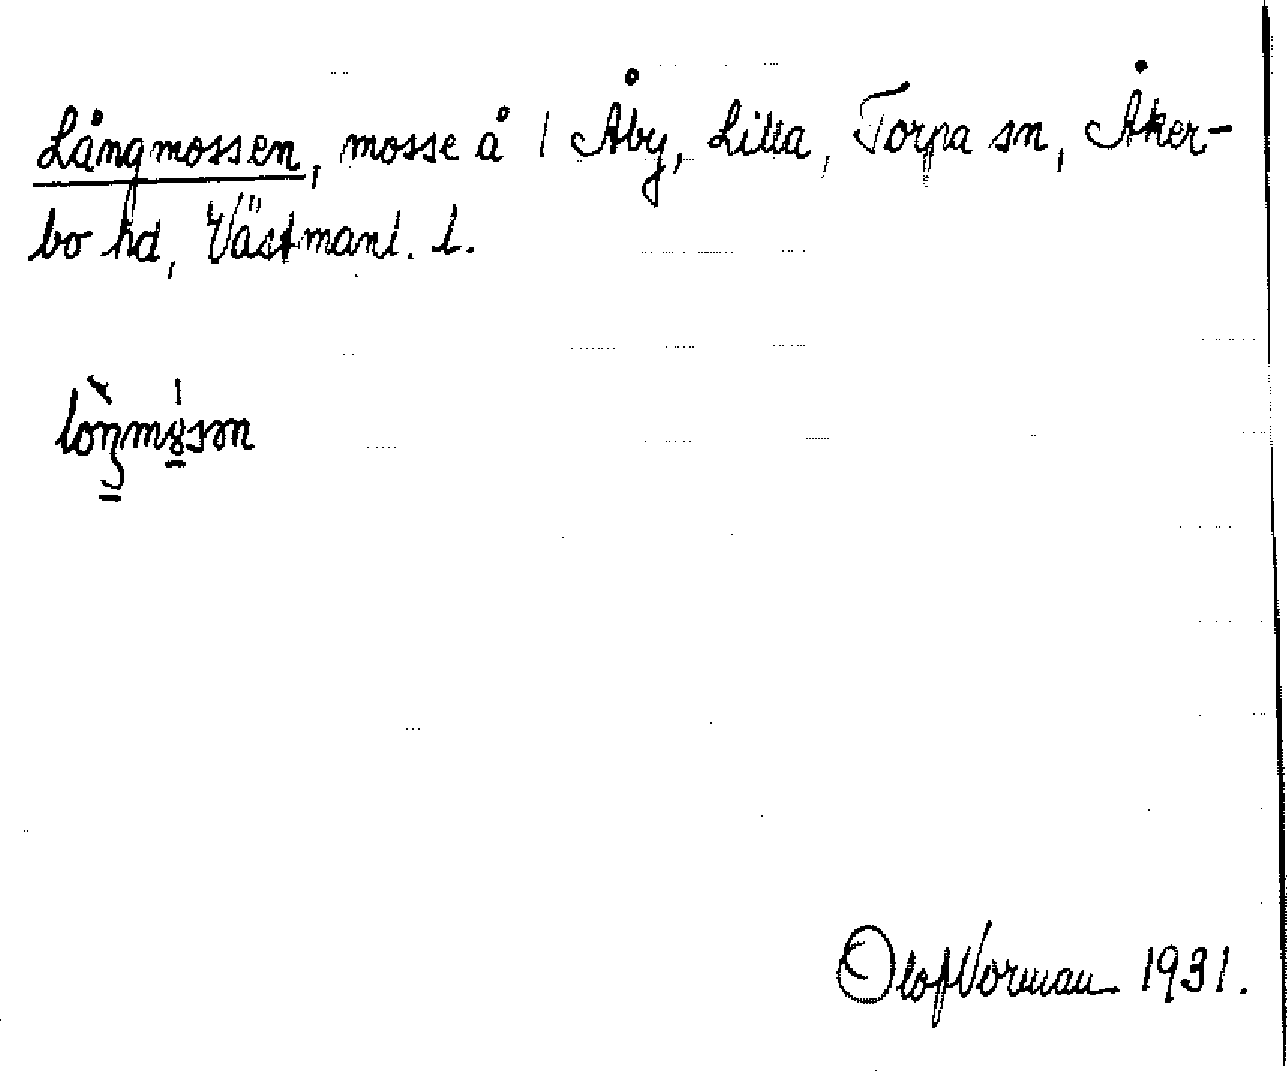 Långmossen, mosse å 1 Åby, Lilla, Torpa sn, Åker-
bo hd, Västmanl. l.
Olof Norman 1931.